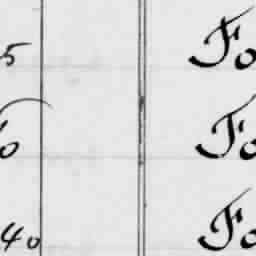 5 Fo
0 Fo
40 Fo